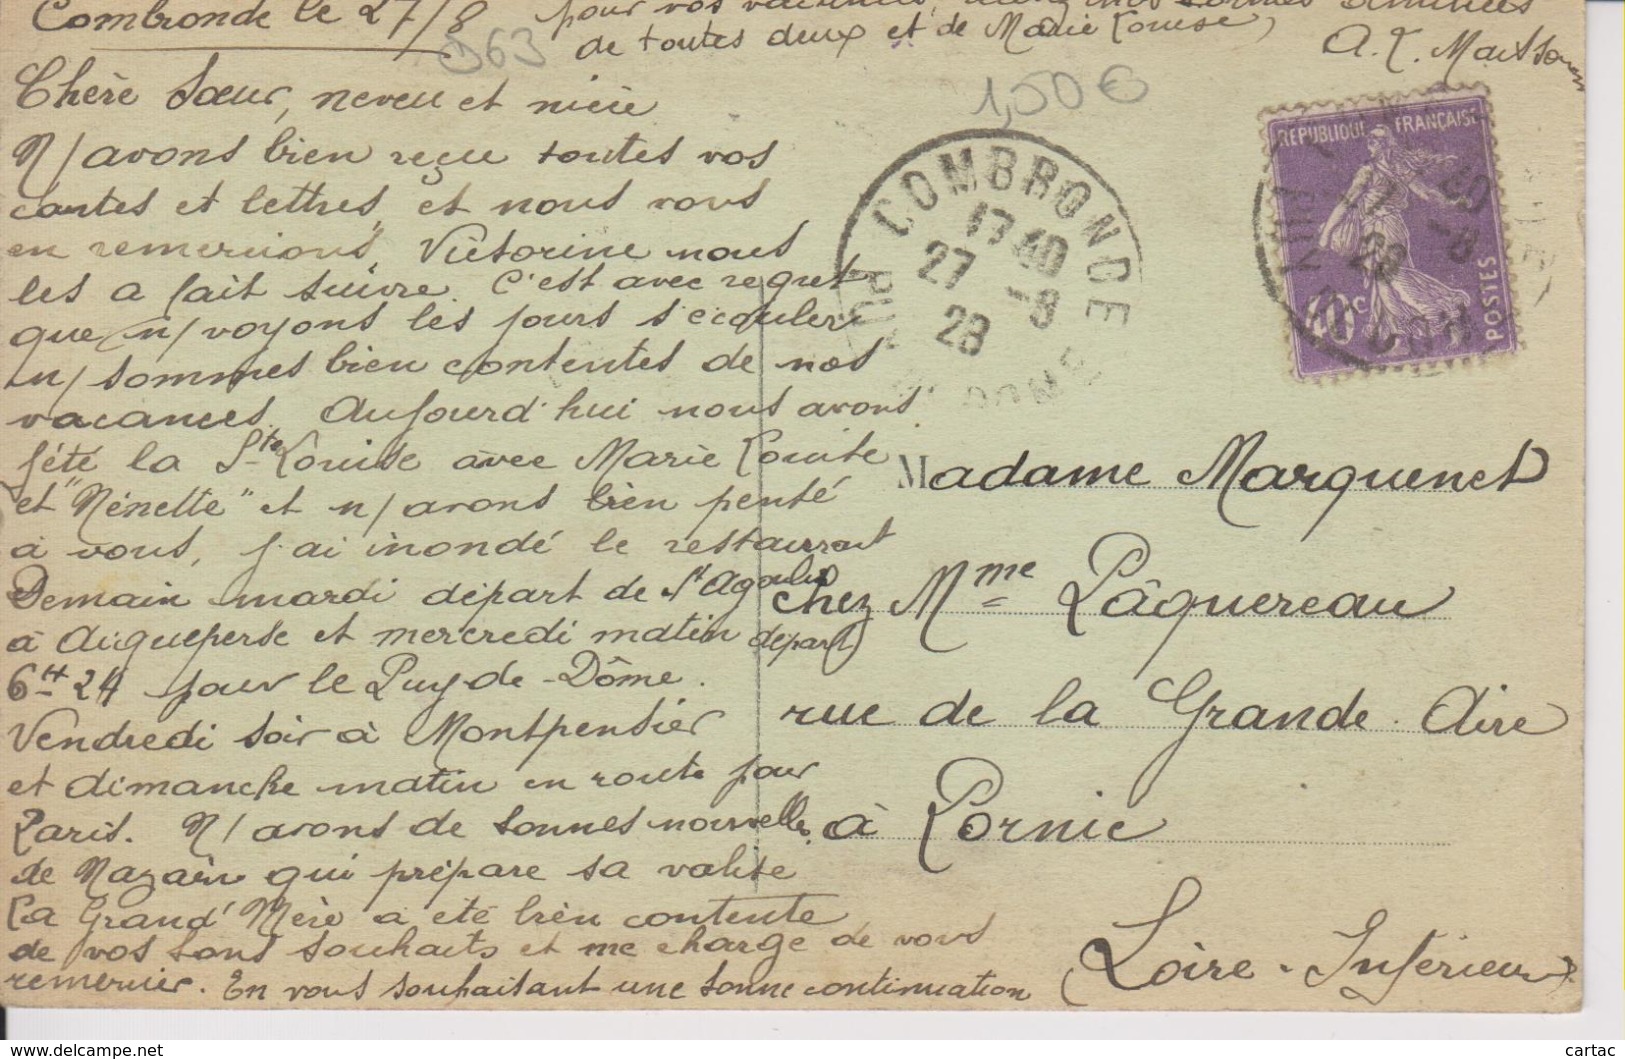 Combronde le 27/8
pour vos vacances,
de toutes deux et de Marie Louise,
D63
1,50€
Chère Sœur, neveu et nièce
N/ avons bien reçu toutes vos
cartes et lettres, et nous vous
en remercions, Victorine nous
les a fait suivre. C'est avec regret
que n/ voyons les jours s'écouler
n/ sommes bien contentes de nos
vacances. Aujourd'hui nous avons
fêté la Ste Louise avec Marie Louise
et "Nénette" et n/ avons bien pensé
à vous, j'ai inondé le restaurant
Demain mardi départ de St Agoulin
à Aigueperse et mercredi matin départ
6H 24 pour le Puy-de-Dôme.
Vendredi soir à Montpensier
et dimanche matin en route pour
Paris. N/ avons de bonnes nouvelles
de Nazaire qui prépare sa valise
La Grand'Mère a été bien contente
de vos bons souhaits et me charge de vous
remercier. En vous souhaitant une bonne continuation
COMBRONDE
17 40
27 -8
28
PUY DE DOME
REPUBLIQUE FRANÇAISE
40c
POSTES
Madame Marquenet
chez Mme Pâquereau
rue de la Grande Aire
à Pornic
(Loire-Inférieure).
www.delcampe.net
cartac